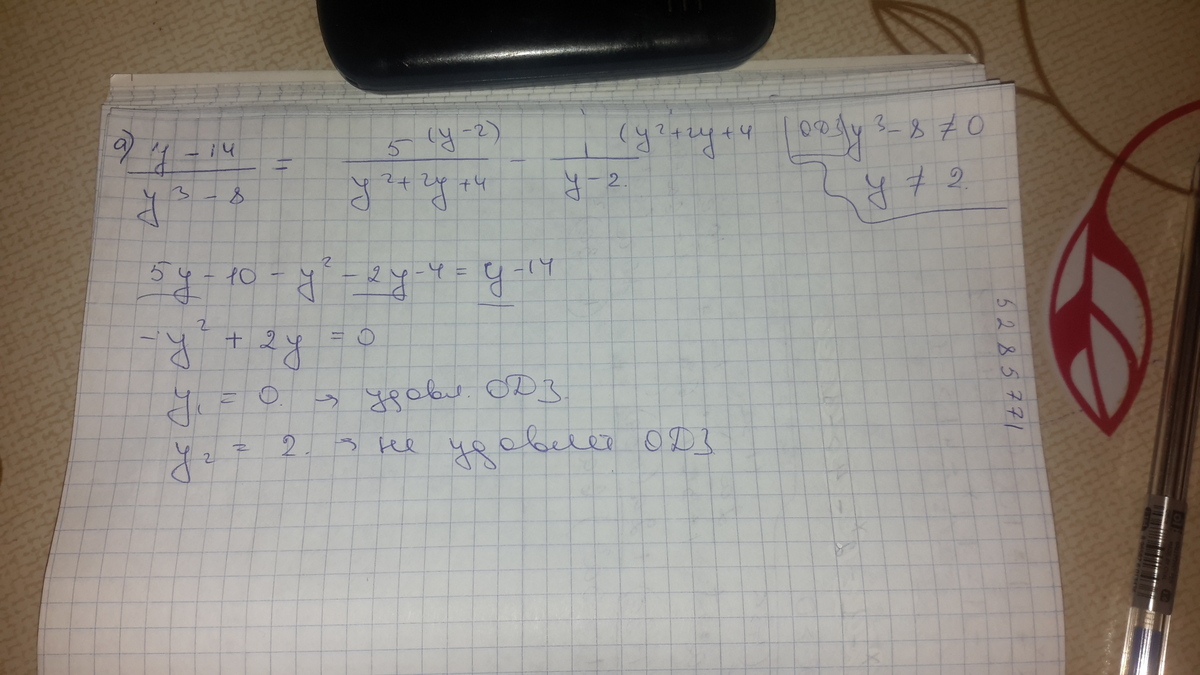 а) y - 14 / y³ - 8 = 5 (y-2) / y² + 2y + 4 - 1 (y² + 2y + 4 / y - 2.
ОДЗ y³ - 8 ≠ 0
y ≠ 2.
5y - 10 - y² - 2y - 4 = y - 14
- y² + 2y = 0
y₁ = 0. → удовл. ОДЗ.
y₂ = 2. → не удовлет ОДЗ
52285771